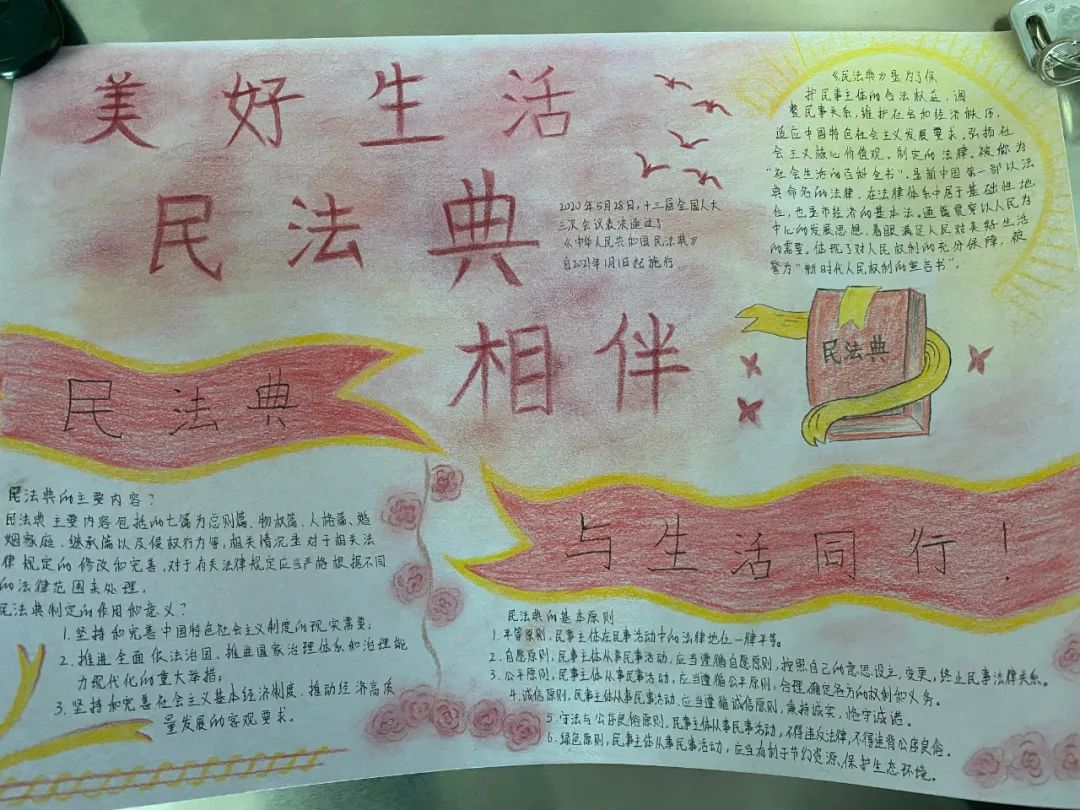 美好生活
民法典
相伴
2020年5月28日,十三届全国人大
三次会议表决通过了
《中华人民共和国民法典》
自2021年1月1日起施行
《民法典》是为了保
护民事主体的合法权益,调
整民事关系,维护社会和经济秩序,
适应中国特色社会主义发展要求,弘扬社
会主义核心价值观,制定的法律。被称为
"社会生活的百科全书",是新中国第一部以法
典命名的法律,在法律体系中居于基础性地
位,也是市经济的基本法。通篇贯穿以人民为
中心的发展思想,着眼满足人民对美好生活
的需要,体现了对人民权利的充分保障,被
誉为"新时代人民权利的宣告书"。
民法典
民法典
与生活同行!
民法典的主要内容?
民法典主要内容包括的七篇为总则篇、物权篇、人格篇、婚
姻家庭、继承篇以及侵权行为等,相关情况是对于相关法
律规定的修改和完善,对于有关法律规定应当严格根据不同
的法律范围来处理。
民法典制定的作用和意义?
1.坚持和完善中国特色社会主义制度的现实需要;
2.推进全面依法治国、推进国家治理体系和治理能
力现代化的重大举措;
3.坚持和完善社会主义基本经济制度、推动经济高质
量发展的客观要求。
民法典的基本原则
1.平等原则,民事主体在民事活动中的法律地位一律平等。
2.自愿原则,民事主体从事民事活动,应当遵循自愿原则,按照自己的意思设立,变更,终止民事法律关系。
3.公平原则,民事主体从事民事活动,应当遵循公平原则,合理确定各方的权利和义务。
4.诚信原则,民事主体从事民事活动,应当遵循诚信原则,秉持诚实,恪守诚诺。
5.守法与公序良俗原则,民事主体从事民事活动,不得违反法律,不得违背公序良俗。
6.绿色原则,民事主体从事民事活动,应当有利于节约资源,保护生态环境。